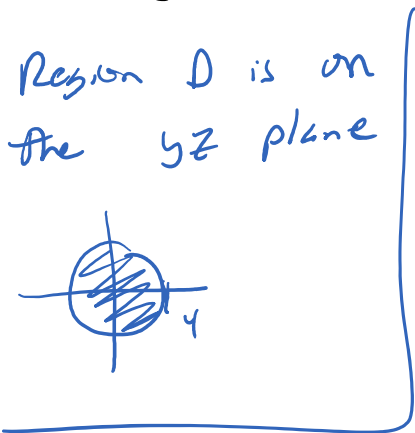 Region D is on
the yz plane
y